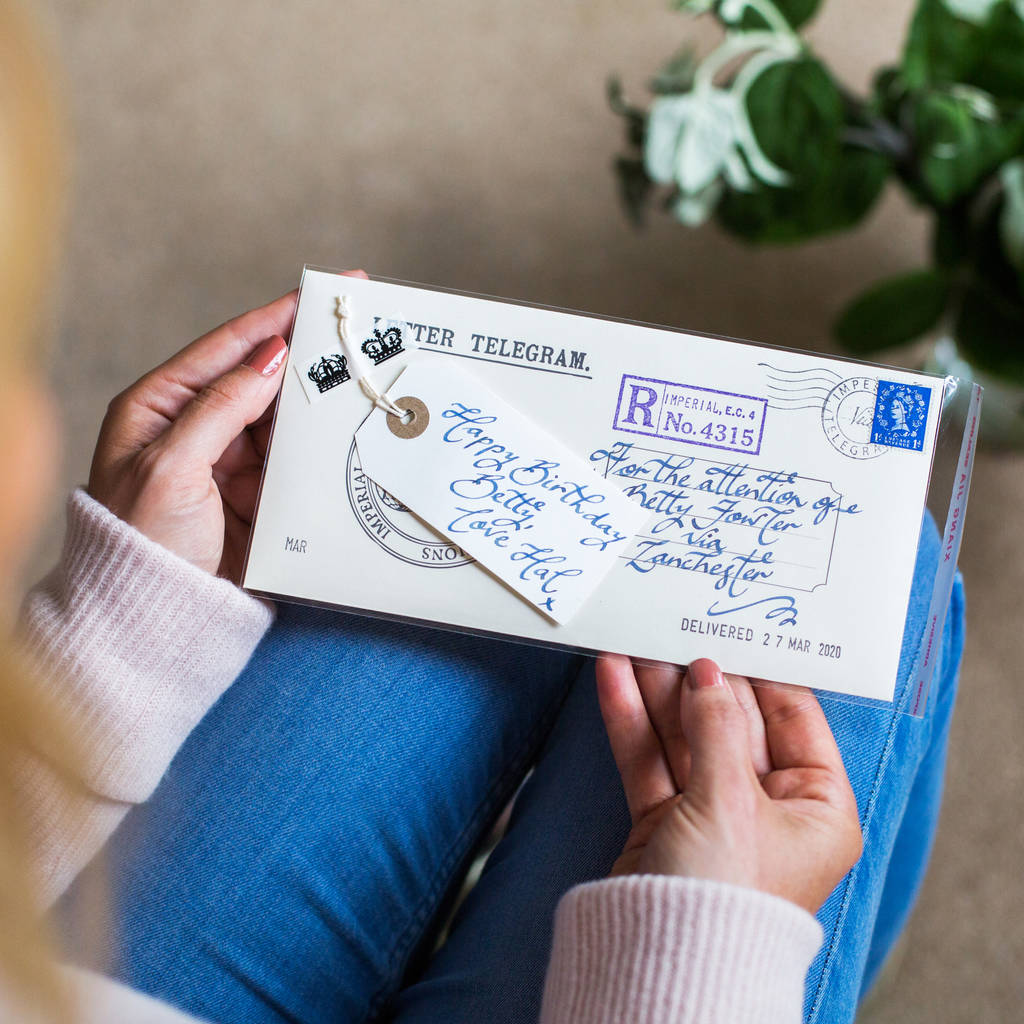 LETTER TELEGRAM.
R IMPERIAL, E.C. 4
No. 4315
IMPERIAL
TELEGRA
Via
Happy Birthday
Betty,
Love Hal
x
For the attention of
Betty Fowler
Via
Lanchester
IMPERIAL
IONS
MAR
DELIVERED 27 MAR 2020